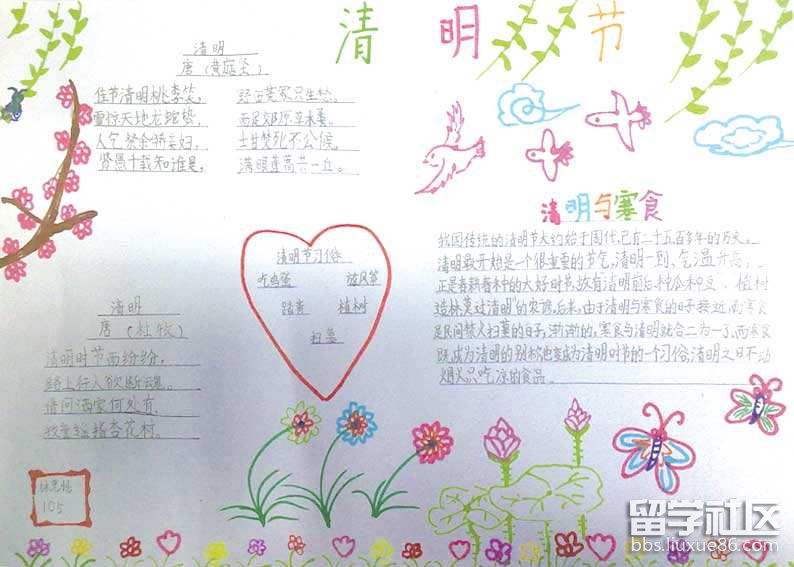 清明节
清明
唐（黄庭坚）
佳节清明桃李笑，
野田荒冢只生愁。
雷惊天地龙蛇蛰，
雨足郊原草木柔。
人乞祭余骄妾妇，
士甘焚死不公候。
贤愚千载知谁是，
满眼蓬蒿共一丘。
清明节习俗
吃鸡蛋 放风筝
踏青 植树
扫墓
清明
唐（杜牧）
清明时节雨纷纷，
路上行人欲断魂。
借问酒家何处有，
牧童遥指杏花村。
105
清明与寒食
我国传统的清明节大约始于周代，已有二十五百多年的历史。
清明最开始是一个很重要的节气，清明一到，气温升高，
正是春耕春种的大好时节，故有清明前后，种瓜种豆，植树
造林，莫过清明"的农谚。后来，由于清明与寒食的日子接近，而寒食
是民间禁火扫墓的日子，渐渐的，寒食与清明就合二为一了，而寒食
既成为清明的别称，也变成为清明时节的一个习俗，清明之日不动
烟火，只吃凉的食品。
留学社区
bbs.liuxue86.com